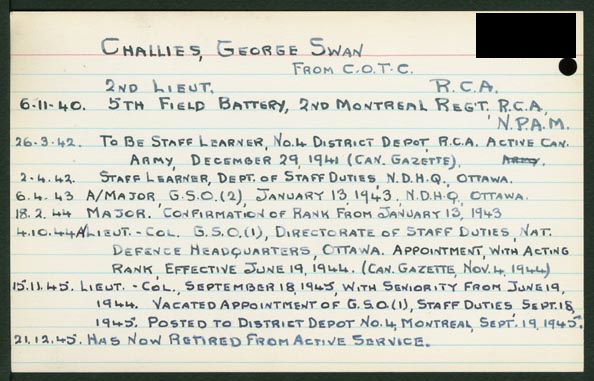 CHALLIES, GEORGE SWAN
FROM C.O.T.C.
2ND LIEUT. R.C.A.
6-11-40. 5TH FIELD BATTERY, 2ND MONTREAL REGT. R.C.A.
N.P.A.M.
26-3-42. TO BE STAFF LEARNER, NO.4 DISTRICT DEPOT, R.C.A. ACTIVE CAN.
ARMY, DECEMBER 29, 1941 (CAN. GAZETTE). ARMY.
2-4-42. STAFF LEARNER, DEPT. OF STAFF DUTIES, N.D.H.Q., OTTAWA.
6.4.43 A/MAJOR, G.S.O.(2), JANUARY 13, 1943, N.D.H.Q., OTTAWA.
18.2.44 MAJOR. CONFIRMATION OF RANK FROM JANUARY 13, 1943
4.10.44 A/LIEUT.-COL. G.S.O.(1), DIRECTORATE OF STAFF DUTIES, NAT.
DEFENCE HEADQUARTERS, OTTAWA. APPOINTMENT, WITH ACTING
RANK, EFFECTIVE JUNE 19, 1944. (CAN. GAZETTE, NOV. 4, 1944)
15.11.45. LIEUT.-COL., SEPTEMBER 18, 1945, WITH SENIORITY FROM JUNE 19,
1944. VACATED APPOINTMENT OF G.S.O.(1), STAFF DUTIES SEPT. 18,
1945. POSTED TO DISTRICT DEPOT NO.4, MONTREAL, SEPT. 19, 1945.
21.12.45. HAS NOW RETIRED FROM ACTIVE SERVICE.